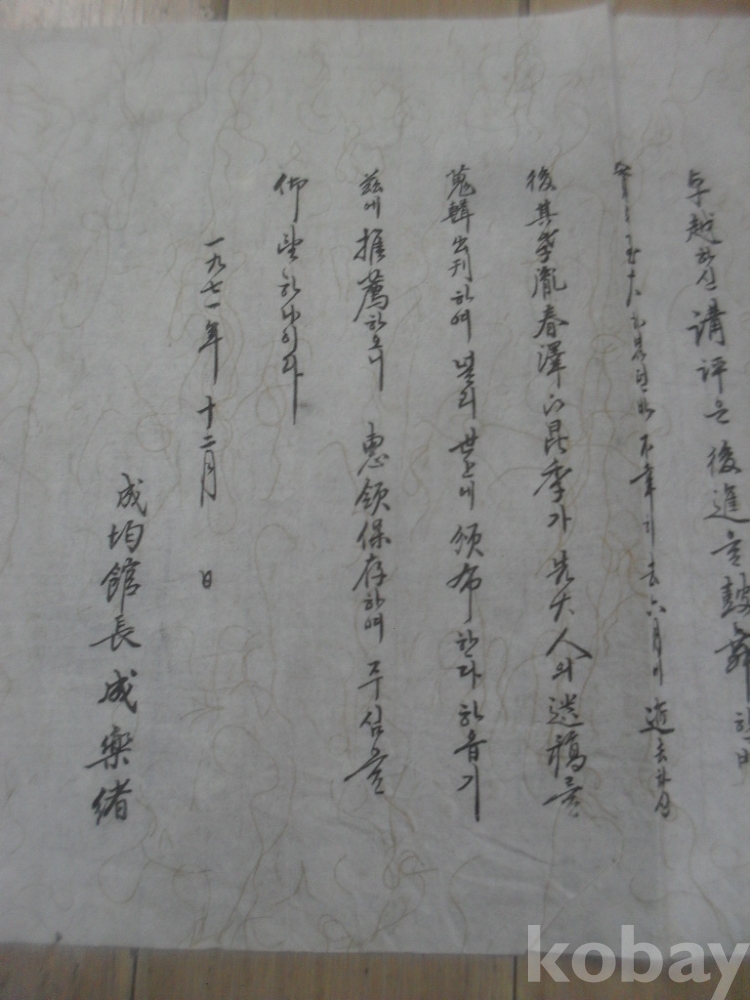 卓越하신 講評은 後進을 鼓舞
不幸히 去六月에 逝去하심
後其季胤春澤의 昆季가 先大人의 遺稿를
蒐輯出刊하여 널리 世上에 頒布한다 하옵기
玆에 推薦하오니 惠領保存하여 주심을
仰望하나이다
一九七一年 十二月 日
成均館長 成樂緖
kobay